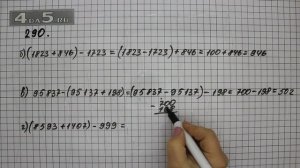 4DA5.RU
290.
б) (1823 + 846) - 1723 = (1823 - 1723) + 846 = 100 + 846 = 946
в) 95837 - (95137 + 198) = (95837 - 95137) - 198 = 700 - 198 = 502
- 700
г) (8593 + 1407) - 999 =